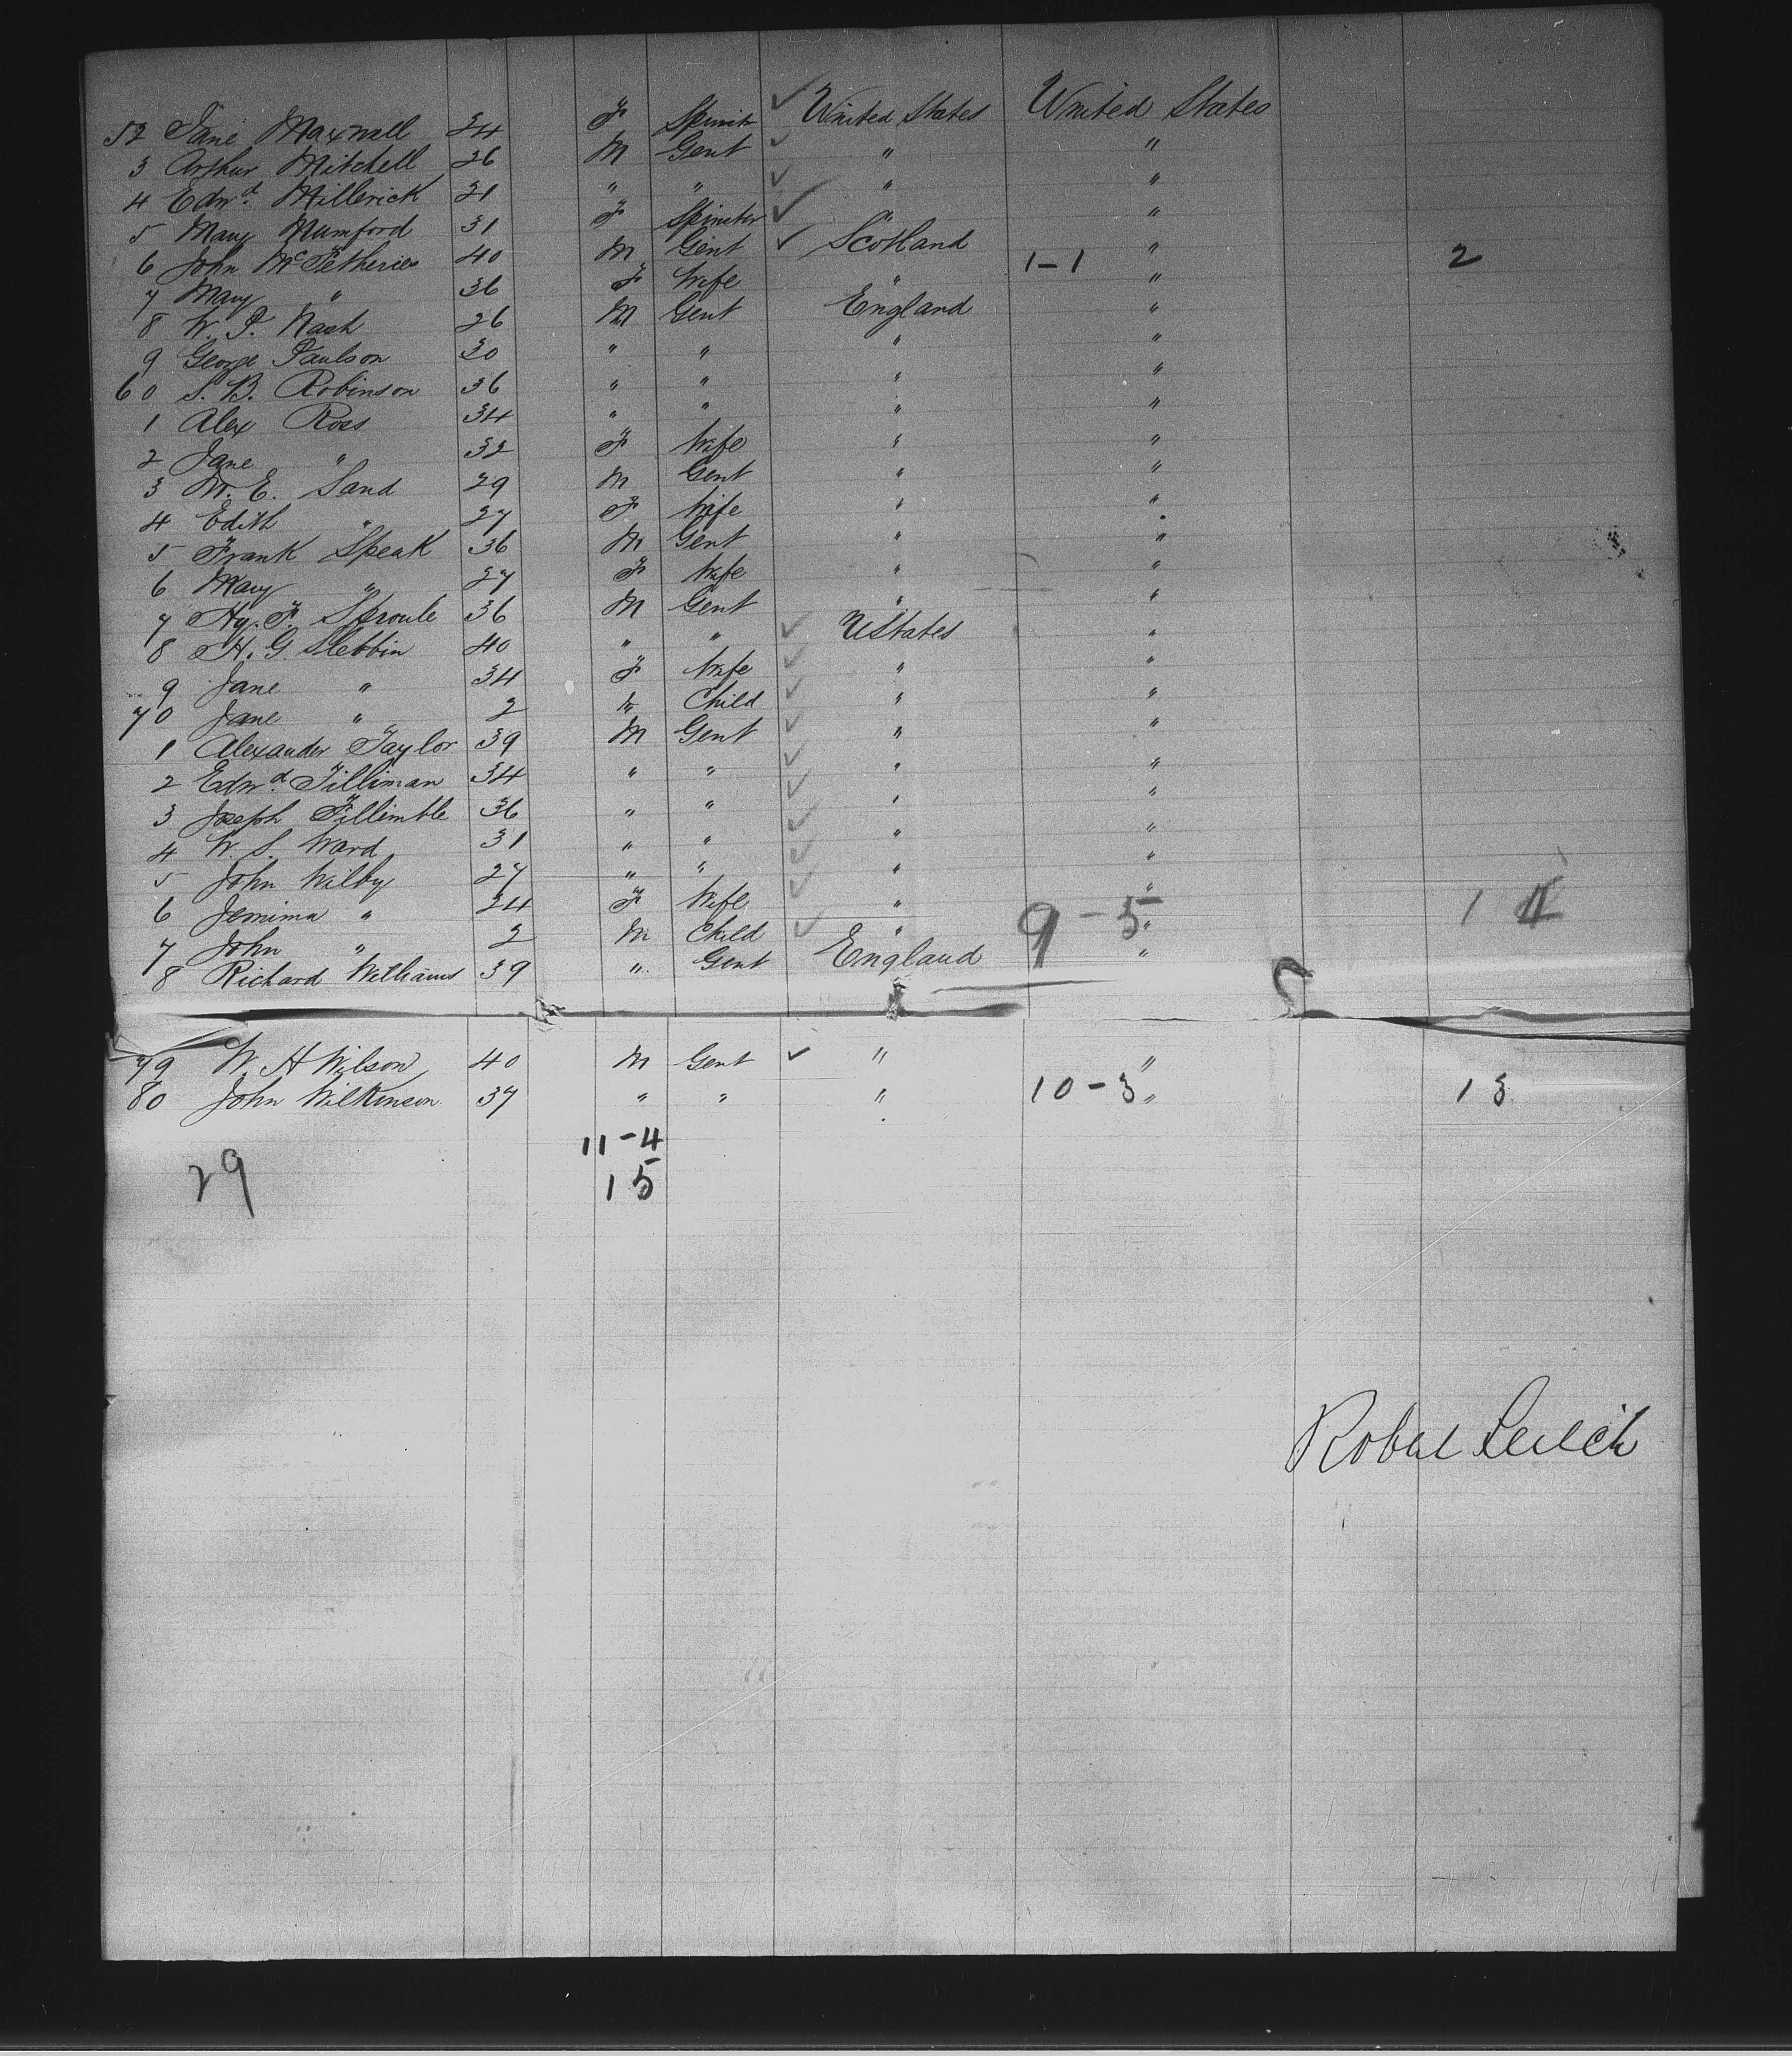 52 Jane Maxwell 24 F Spinstr ✓ United States United States
3 Arthur Mitchell 26 M Gent ✓ " "
4 Edwd. Millerick 21 " " ✓ " "
5 Mary Mumford 31 F Spinster ✓ " "
6 John McFetheries 40 M Gent ✓ Scotland "
7 Mary " 36 F Wife " 1-1 " 2
8 W. P. Nash 26 M Gent England "
9 George Paulson 30 " " " "
60 S. B. Robinson 36 " " " "
1 Alex Ross 34 " " " "
2 Jane " 32 F Wife " "
3 M. E. Sand 29 M Gent " "
4 Edith " 27 F Wife " "
5 Frank Speak 36 M Gent " "
6 Mary " 27 F Wife " "
7 Hy. F. Sproule 36 M Gent " "
8 H. G. Stebbin 40 " " ✓ UStates "
9 Jane " 34 F Wife ✓ " "
70 Jane " 2 Child ✓ " "
1 Alexander Taylor 39 M Gent ✓ " "
2 Edwd. Tilliman 34 " " ✓ " "
3 Joseph 36 " " ✓ " "
4 W. S. Ward 31 " " ✓ " "
5 John Wilby 27 " " ✓ " "
6 Jemima " 24 F Wife ✓ " "
7 John " 2 M Child ✓ " 9-5 " 14
8 Richard Williams 39 " Gent England "
79 W. H Wilson 40 M Gent ✓ " "
80 John Wilkinson 37 " " " 10-3 " 13
11-4
29 15
Robert Leitch